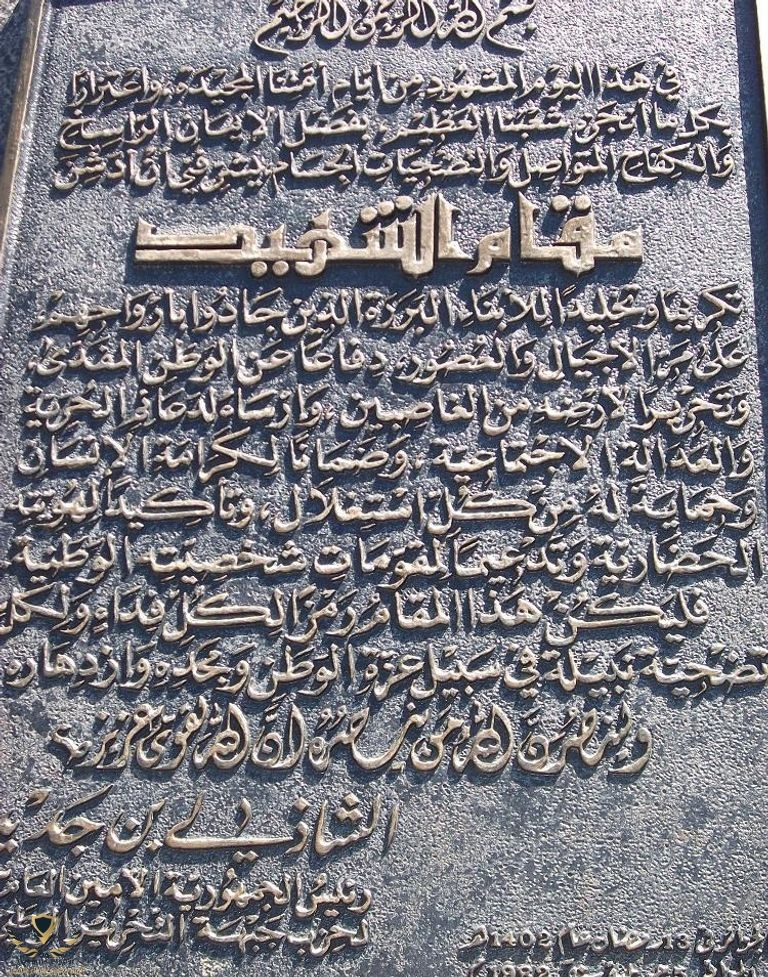 بسم الله الرحمن الرحيم
في هذا اليوم المشهود من أيام أمتنا المجيدة، واعتزازا
بكل ما أنجزه شعبنا العظيم، بفضل الإيمان الراسخ
والكفاح المتواصل والتضحيات الجسام يشرفني أن أدشن
مقام الشهيد
تكريما وتخليدا للأبناء البررة الذين جادوا بأرواحهم
على مر الأجيال والعصور، دفاعا عن الوطن المفدى،
وتحريرا لأرضه من الغاصبين، وإرساء لدعائم الحرية
والعدالة الاجتماعية، وضمانا لكرامة الإنسان
وحماية له من كل استغلال، وتأكيدا لهويته
الحضارية وتدعيما لمقومات شخصيته الوطنية
فليكن هذا المقام رمزا لكل فداء ولكل
تضحية نبيلة في سبيل عزة الوطن ومجده وازدهاره.
ولينصرن الله من ينصره إن الله لقوي عزيز
الشاذلي بن جديد
رئيس الجمهورية الأمين العام
لحزب جبهة التحرير
13 رمضان عام 1402هـ